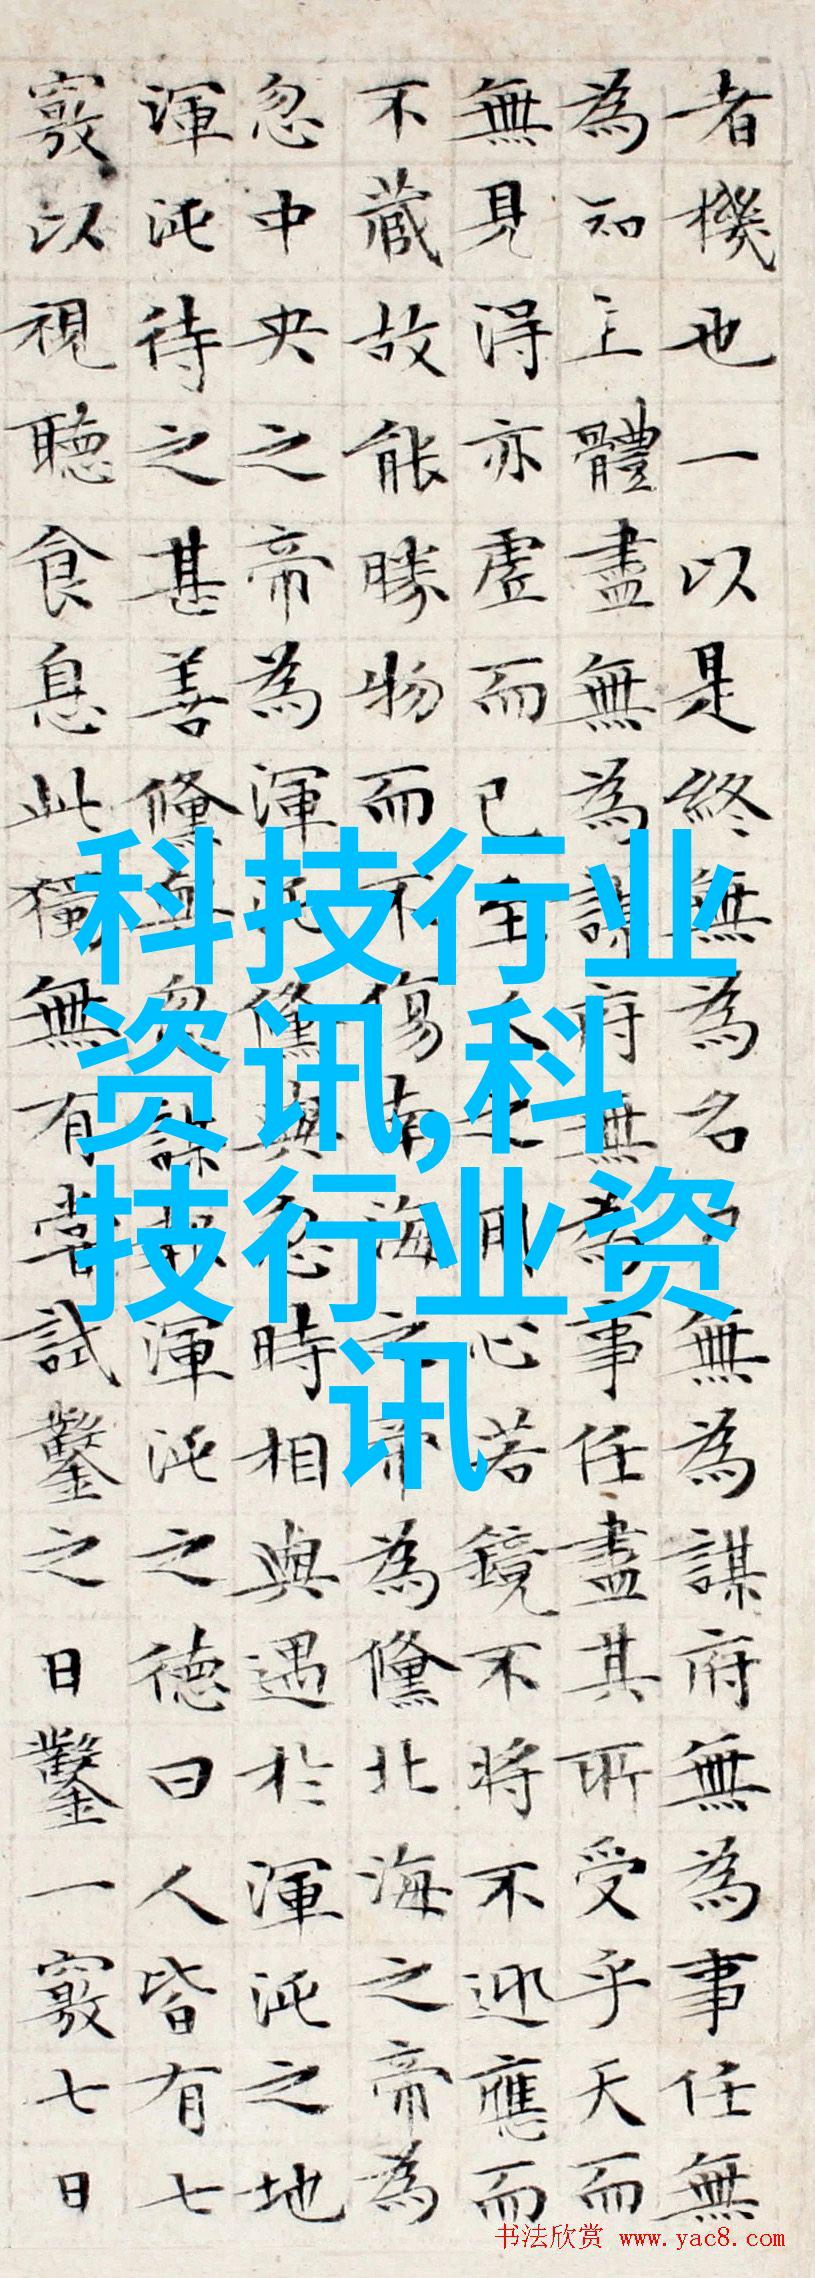 者機也一以是終無為名尸無為謀府無為事任無
為知主體盡無為謀府無為事任盡其所受乎天而
無見得亦虛而已至人之用心若鏡不將不迎應而
不藏故能勝物而不傷南海之帝為儵北海之帝為
忽中央之帝為渾沌儵與忽時相與遇於渾沌之地
渾沌待之甚善儵與忽謀報渾沌之德曰人皆有七
竅以視聽食息此獨無有嘗試鑿之日鑿一竅七日
科技行业
资讯,科
技行业资
讯
书法欣赏 www.yac8.com